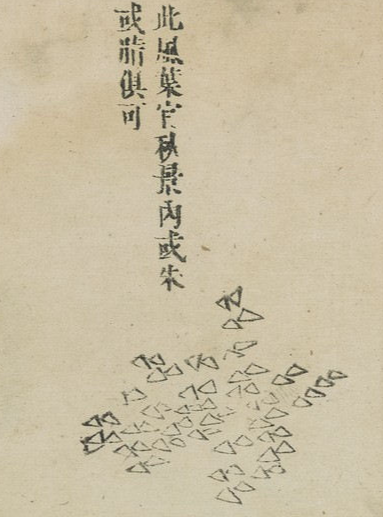 此風葉宜秋景內或朱
或腈俱可